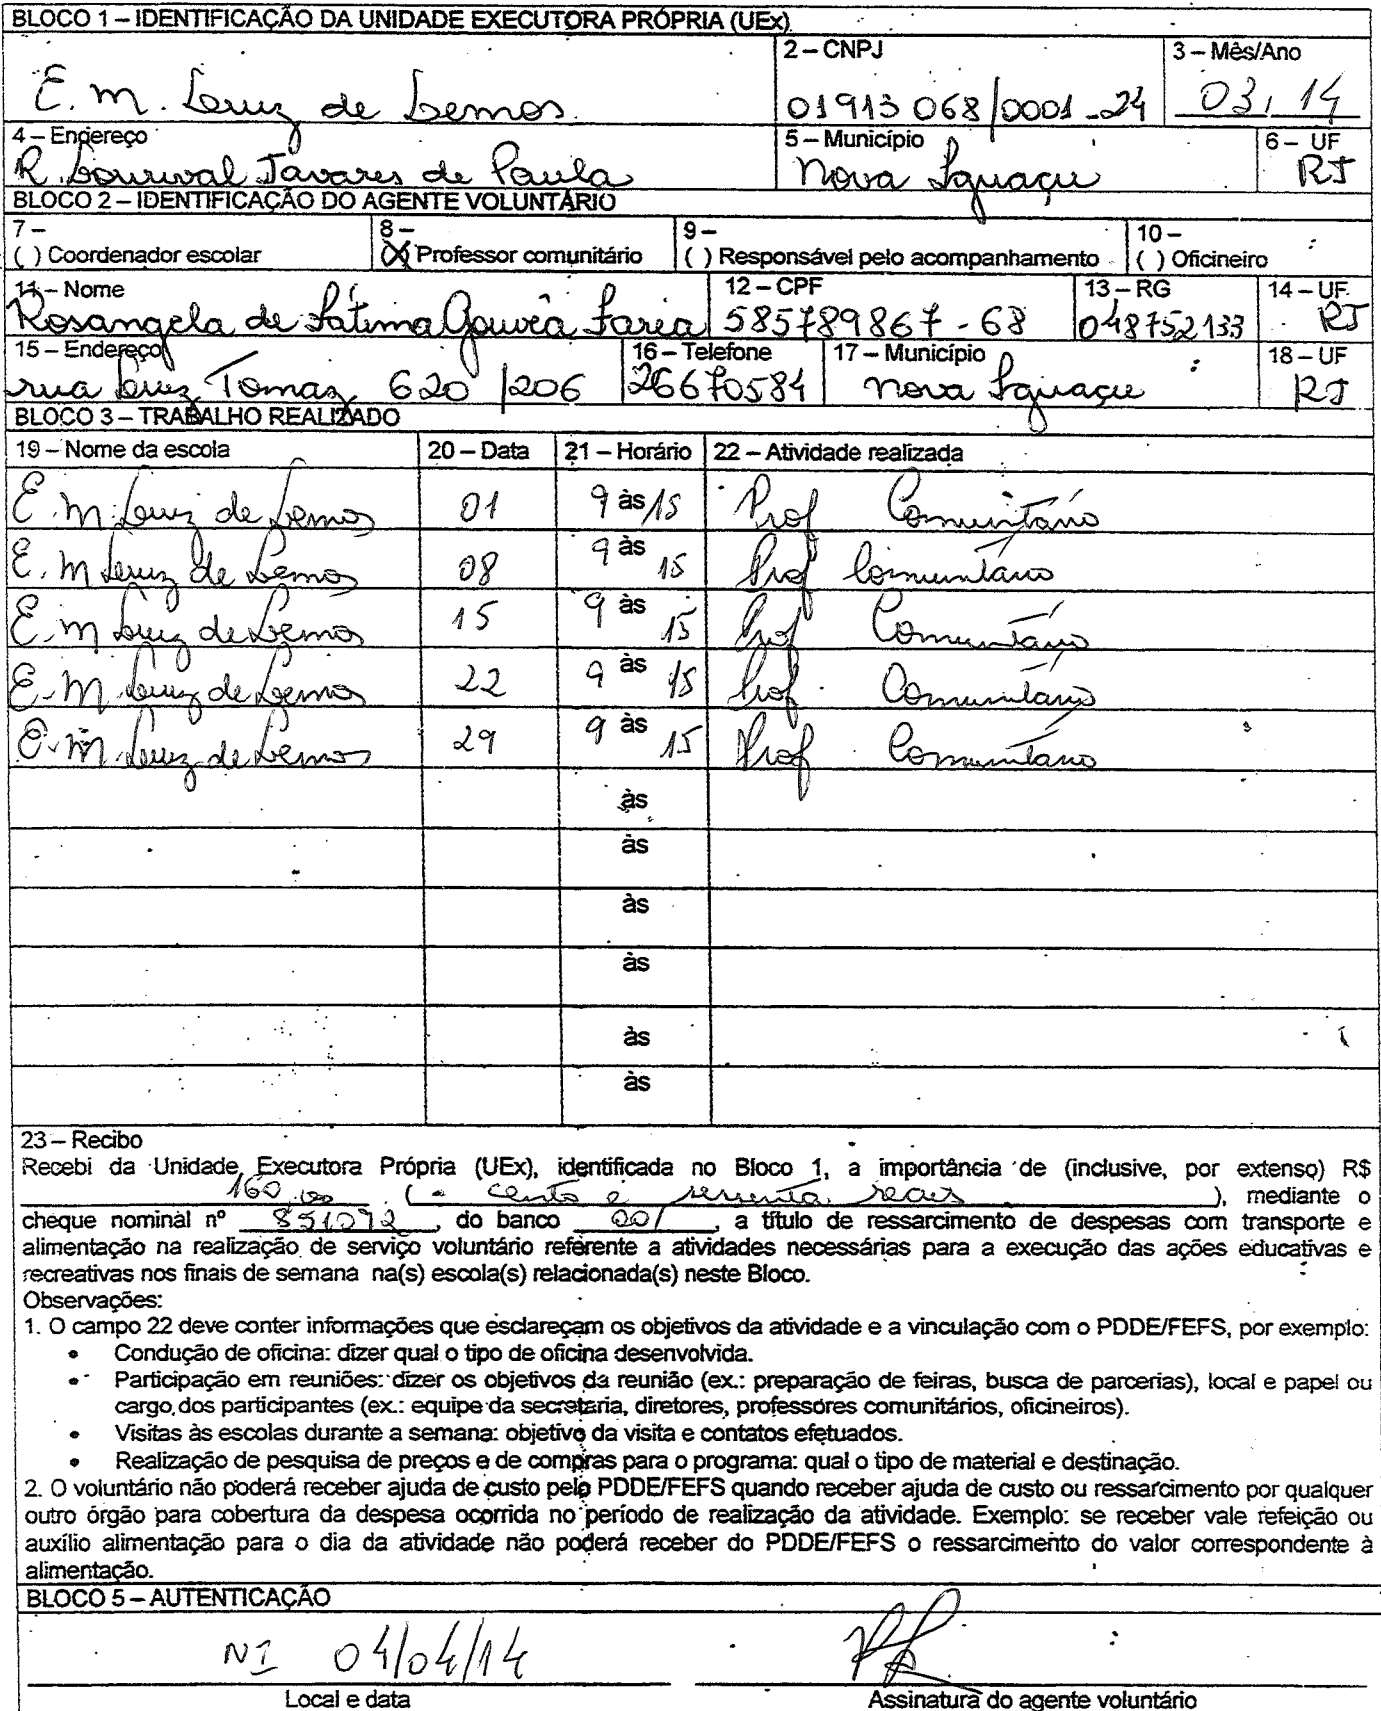 BLOCO 1 – IDENTIFICAÇÃO DA UNIDADE EXECUTORA PRÓPRIA (UEx)
2 – CNPJ 3 – Mês/Ano
E. M. Luiz de Lemos 01913 068/0001-24 03, 14
4 – Endereço 5 – Município 6 – UF
R. Lourival Tavares de Paula Nova Iguaçu RJ
BLOCO 2 – IDENTIFICAÇÃO DO AGENTE VOLUNTÁRIO
7 – 8 – 9 – 10 –
( ) Coordenador escolar (X) Professor comunitário ( ) Responsável pelo acompanhamento ( ) Oficineiro
11 – Nome 12 – CPF 13 – RG 14 – UF
Rosangela de Fátima Gouvêa Faria 585789867-68 048752133 RJ
15 – Endereço 16 – Telefone 17 – Município 18 – UF
rua Luiz Tomaz 620 /206 26670584 nova Iguaçu RJ
BLOCO 3 – TRABALHO REALIZADO
19 – Nome da escola 20 – Data 21 – Horário 22 – Atividade realizada
E. M. Luiz de Lemos 01 9 às 15 Prof Comunitário
E. M Luiz de Lemos 08 9 às 15 Prof Comunitário
E. M Luiz de Lemos 15 9 às 15 Prof Comunitário
E. M. Luiz de Lemos 22 9 às 15 Prof. Comunitário
E. M. Luiz de Lemos 29 9 às 15 Prof Comunitário
às
às
às
às
às
às
23 – Recibo
Recebi da Unidade Executora Própria (UEx), identificada no Bloco 1, a importância de (inclusive, por extenso) R$
160,00 (- cento e sessenta reais ), mediante o
cheque nominal nº 851072, do banco 001, a título de ressarcimento de despesas com transporte e
alimentação na realização de serviço voluntário referente a atividades necessárias para a execução das ações educativas e
recreativas nos finais de semana na(s) escola(s) relacionada(s) neste Bloco.
Observações:
1. O campo 22 deve conter informações que esclareçam os objetivos da atividade e a vinculação com o PDDE/FEFS, por exemplo:
• Condução de oficina: dizer qual o tipo de oficina desenvolvida.
• Participação em reuniões: dizer os objetivos da reunião (ex.: preparação de feiras, busca de parcerias), local e papel ou
cargo dos participantes (ex.: equipe da secretaria, diretores, professores comunitários, oficineiros).
• Visitas às escolas durante a semana: objetivo da visita e contatos efetuados.
• Realização de pesquisa de preços e de compras para o programa: qual o tipo de material e destinação.
2. O voluntário não poderá receber ajuda de custo pelo PDDE/FEFS quando receber ajuda de custo ou ressarcimento por qualquer
outro órgão para cobertura da despesa ocorrida no período de realização da atividade. Exemplo: se receber vale refeição ou
auxílio alimentação para o dia da atividade não poderá receber do PDDE/FEFS o ressarcimento do valor correspondente à
alimentação.
BLOCO 5 – AUTENTICAÇÃO
NI 04/04/14
Local e data Assinatura do agente voluntário